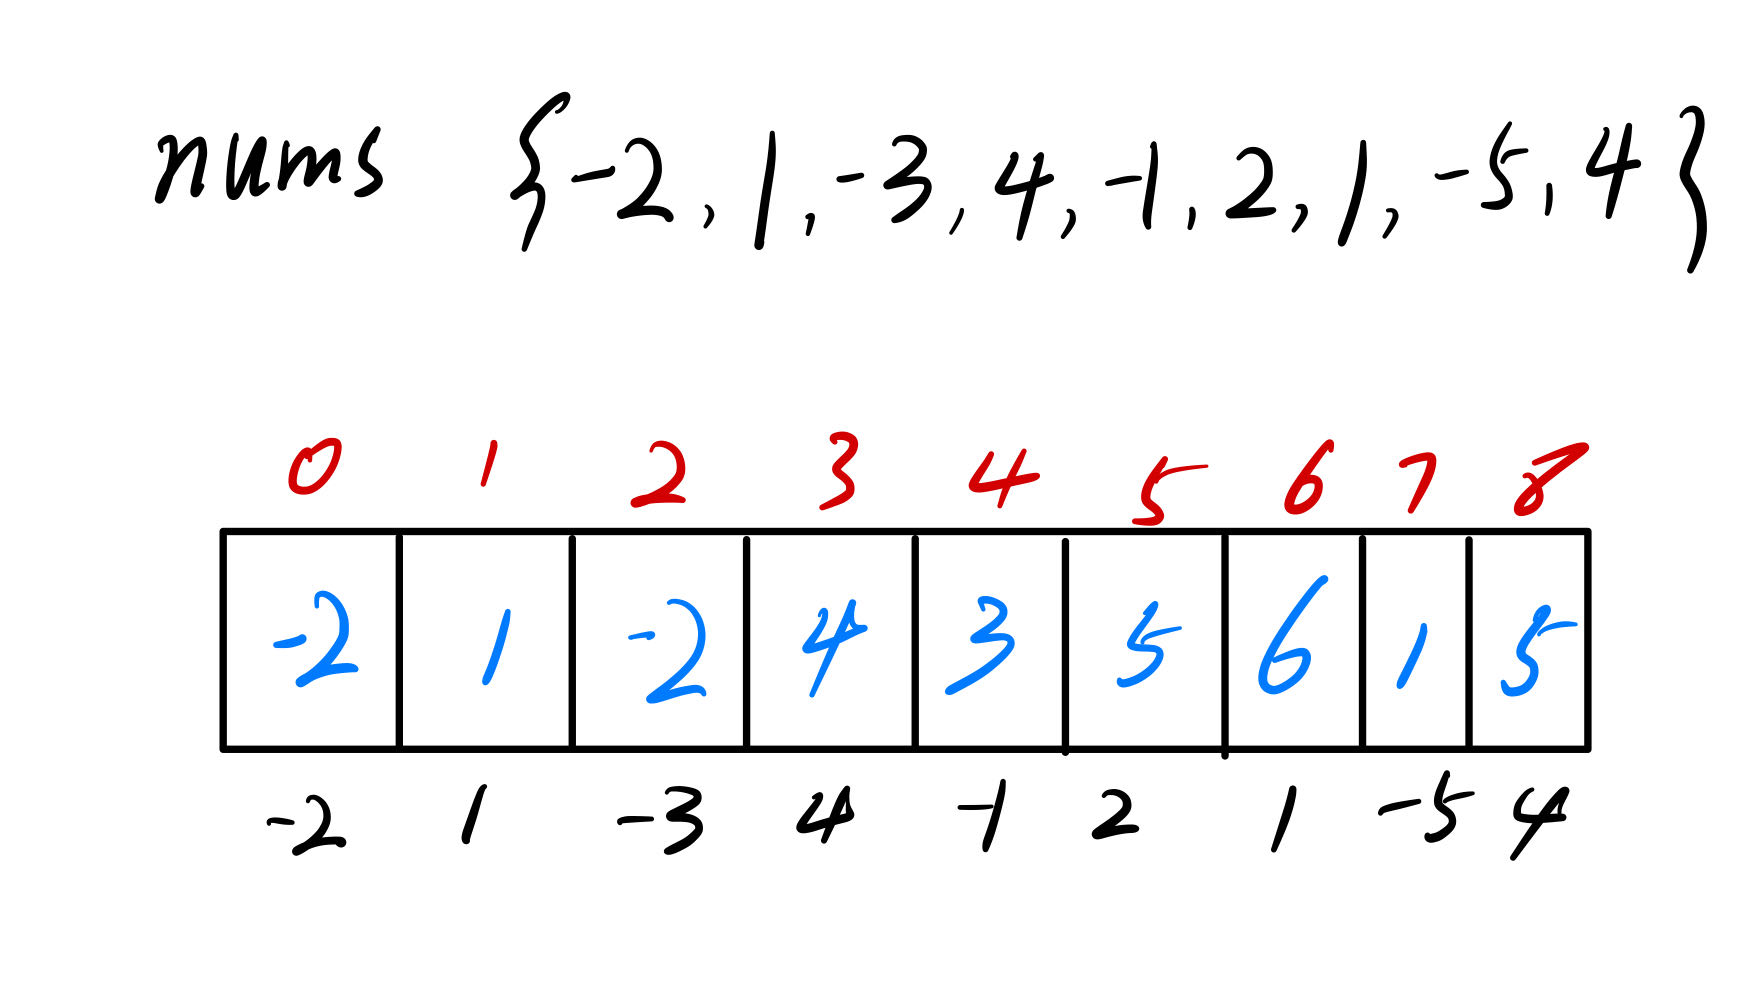 nums {-2, 1, -3, 4, -1, 2, 1, -5, 4}
0 1 2 3 4 5 6 7 8
-2 1 -2 4 3 5 6 1 5
-2 1 -3 4 -1 2 1 -5 4